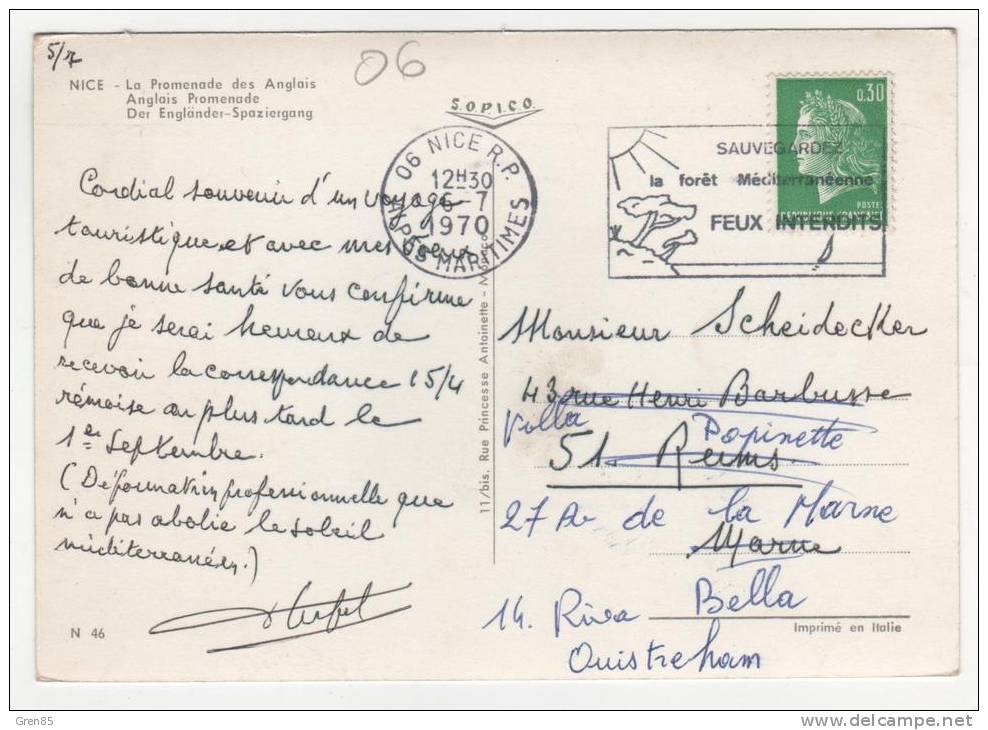 5/7
06
NICE - La Promenade des Anglais
Anglais Promenade
Der Engländer-Spaziergang
S.O.P.I.C.O.
06 NICE R.P.
12H30
6-7
1970
ALPES MARITIMES
SAUVEGARDEZ
la forêt Méditerranéenne
FEUX INTERDITS
0,30
POSTES
REPUBLIQUE FRANÇAISE
Cordial souvenir d'un voyage
touristique et avec mes voeux
de bonne santé vous confirme
que je serai heureux de
recevoir la correspondance 15/4
rémoise au plus tard le
1er Septembre.
(Déformation professionnelle que
n'a pas abolie le soleil
méditerranéen.)
N 46
11/bis, Rue Princesse Antoinette - Monaco
Monsieur Scheidecker
43 rue Henri Barbusse
Villa Popinette
51. Reims
27 Av de la Marne
Marne
14. Riva Bella
Ouistreham
Imprimé en Italie
Gren85
www.delcampe.net